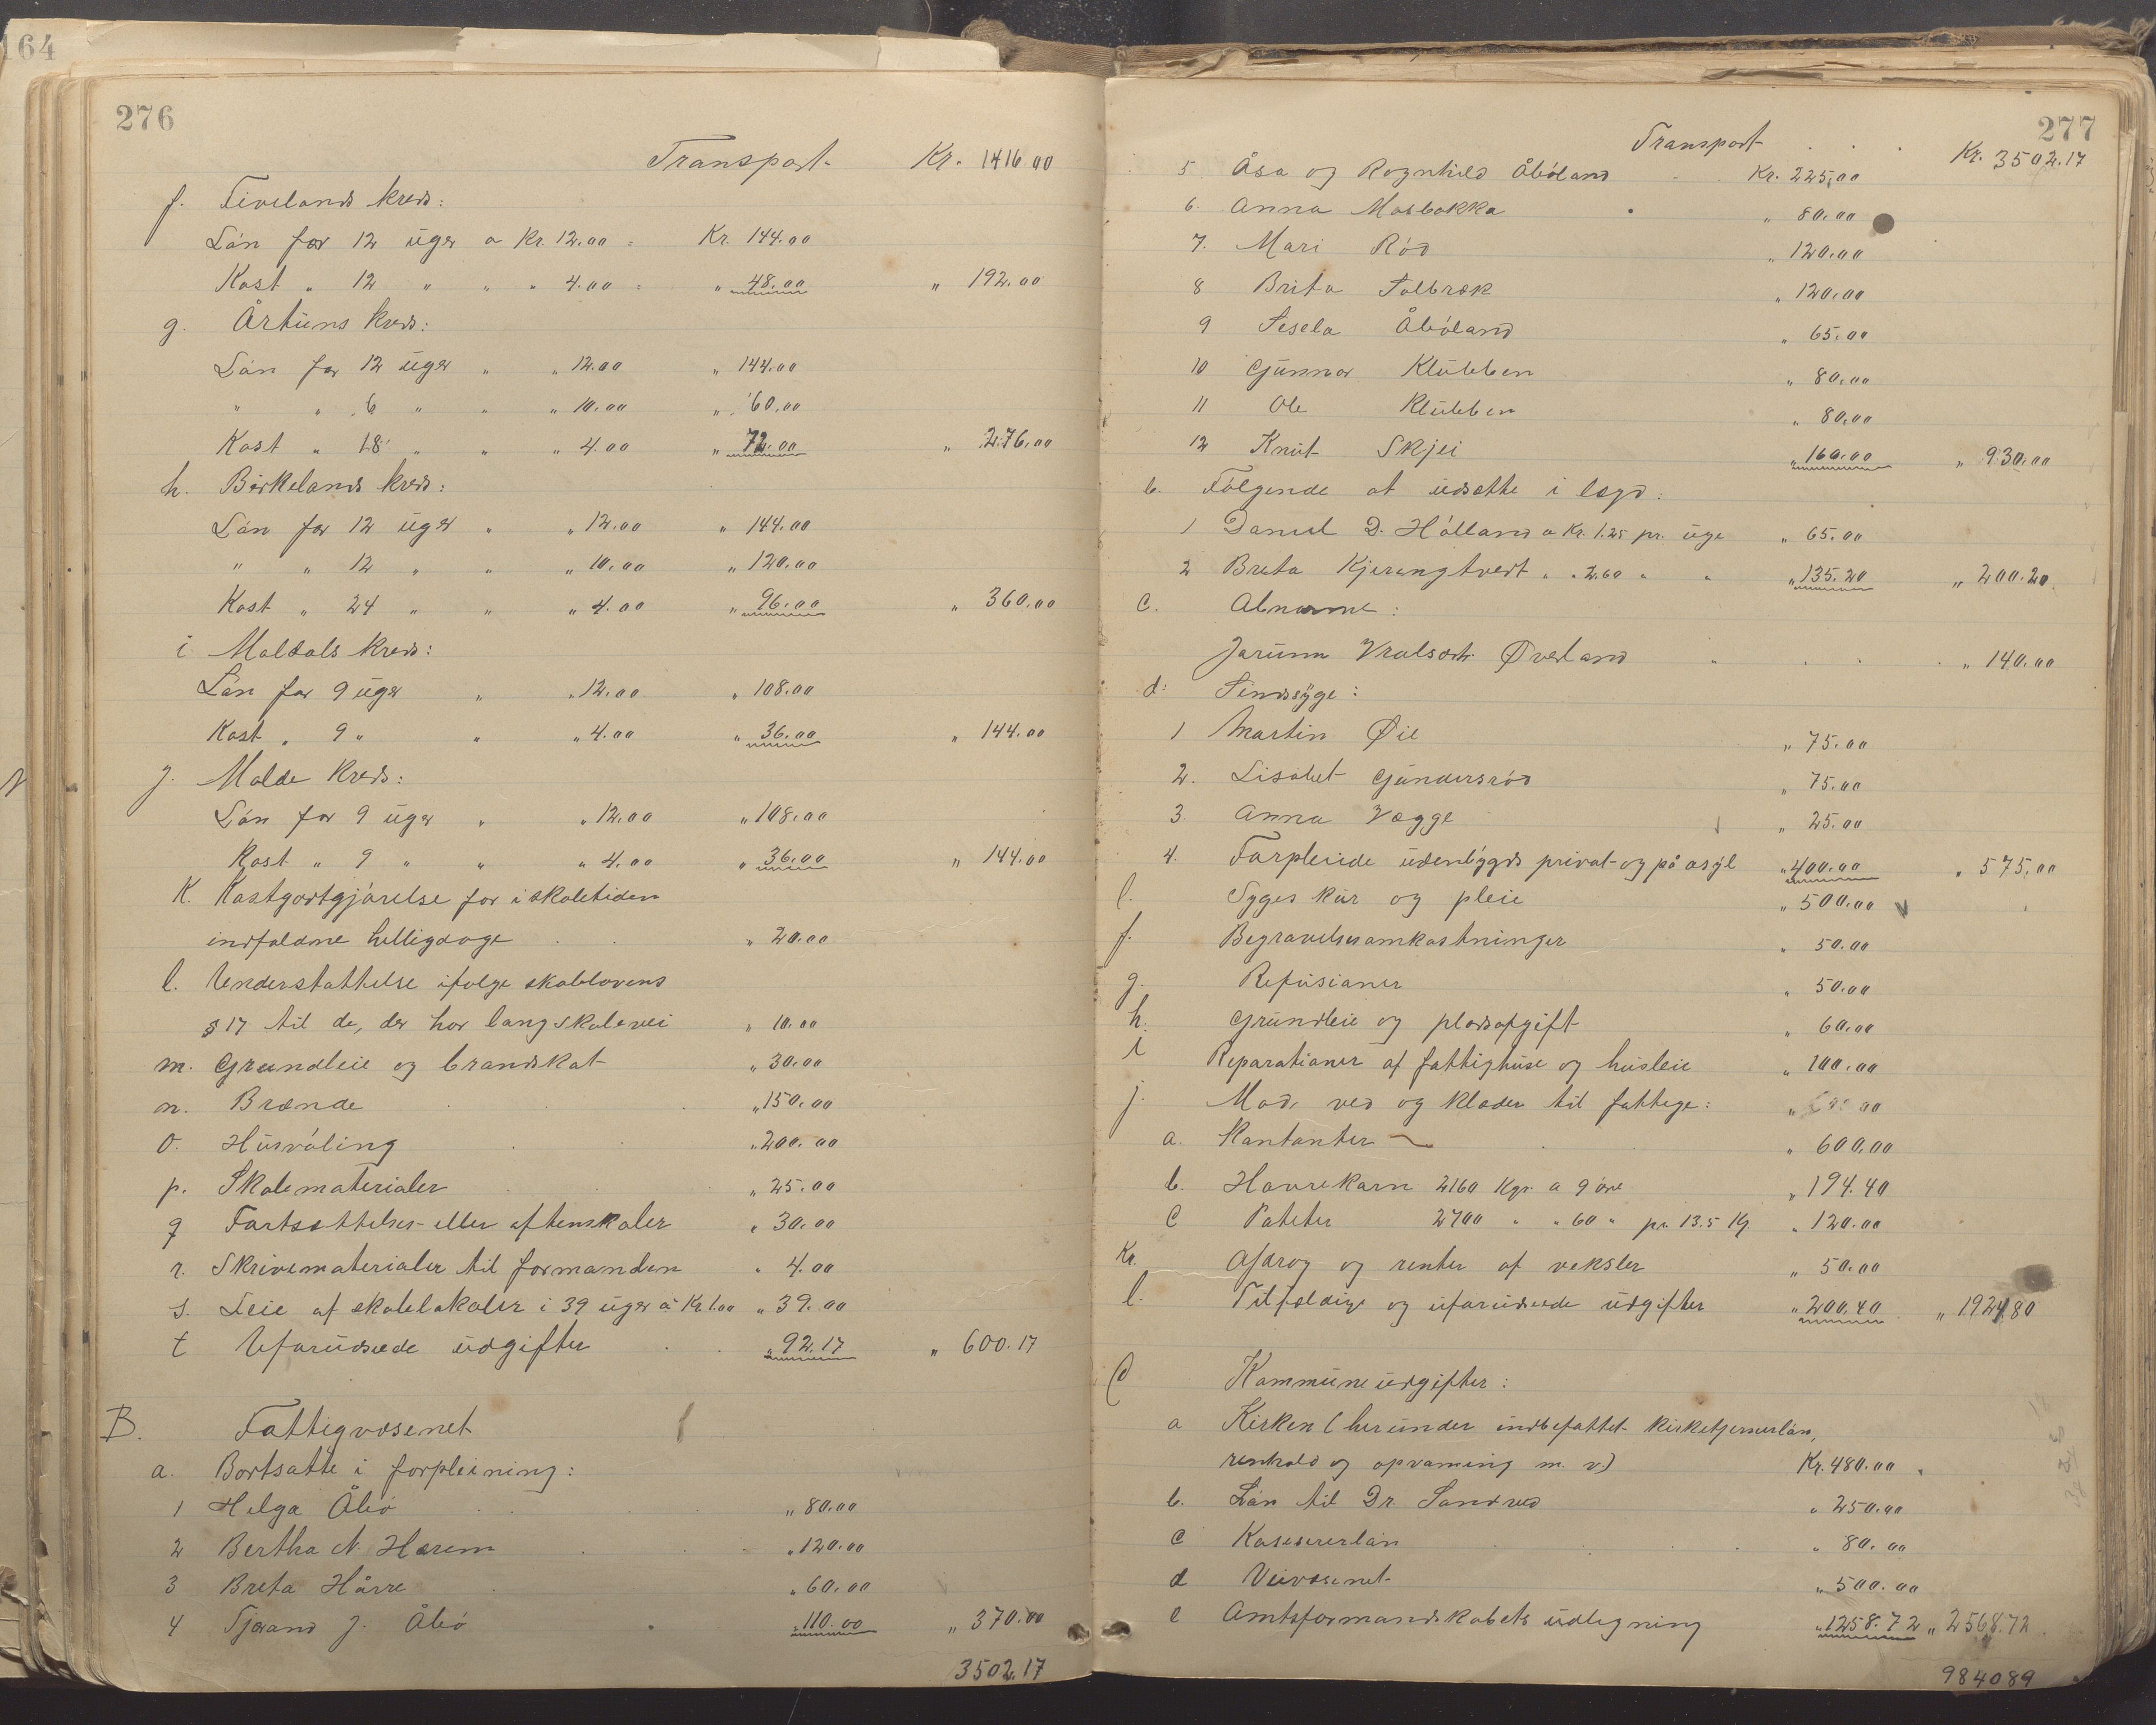 164
276
Transport Kr. 1416.00
f. Tivelands kreds:
Lön for 12 uger a Kr. 12.00 = Kr. 144.00
Kost " 12 " " " 4.00 = " 48.00 " 192.00
g. Årtuns kreds:
Lön for 12 uger " " 12.00 " 144.00
" " 6 " " " 10.00 " 60.00
Kost " 18 " " " 4.00 " 72.00 " 276.00
h. Birkelands kreds:
Lön for 12 uger " " 12.00 " 144.00
" " 12 " " " 10.00 " 120.00
Kost " 24 " " " 4.00 " 96.00 " 360.00
i Maldals kreds:
Lön for 9 uger " " 12.00 " 108.00
Kost " 9 " " " 4.00 " 36.00 " 144.00
j. Molde kreds:
Lön for 9 uger " " 12.00 " 108.00
Kost " 9 " " " 4.00 " 36.00 " 144.00
K. Kostgodtgjörelse for i skoletiden
indfaldne helligdage " 20.00
l. Understøttelse ifølge skolelovens
§ 17 til de, der har lang skolevei " 10.00
m. Grundleie og brandskat " 30.00
n. Brænde " 150.00
o. Husvåling " 200.00
p. Skolematerialer " 25.00
q Fortsættelses- eller aftenskoler " 30.00
r. Skrivematerialer til formanden " 4.00
s. Leie af skolelokaler i 39 uger à Kr 1.00 " 39.00
t Uforudseede udgifter " 92.17 " 600.17
B. Fattigvæsenet
a. Bortsatte i forpleining:
1 Helga Åbö " 80.00
2 Bertha N. Hærem " 120.00
3 Breta Hårre " 60.00
4 Tjerand J. Åbö " 110.00 " 370.00
3502.17
277
Transport Kr. 3502.17
5 Åsa og Ragnhild Åböland Kr. 225.00
6. Anna Mosbakka " 80.00
7. Mari Röd " 120.00
8 Brita Solbræk " 120.00
9 Sesela Åböland " 65.00
10 Gunnar Klubben " 80.00
11 Ole Klubben " 80.00
12 Knut Skjei " 160.00 " 930.00
b. Fölgende at udsætte i lægd:
1 Daniel D. Hålland a Kr. 1.25 pr. uge " 65.00
2 Breta Kjerringtveit " " 2.60 " " " 135.20 " 200.20
c. Abnorme:
Jorunn Vralsdtr. Øverland " 140.00
d. Sindssyge:
1 Martin Øie " 75.00
2. Lisabet Gundersröd " 75.00
3. Anna Vægge " 25.00
4. Forpleiede udenbygds privat- og på asyl " 400.00 " 575.00
e. Syges kur og pleie " 500.00
f. Begravelsesomkostninger " 50.00
g. Refusioner " 50.00
h. Grundleie og pladsafgift " 60.00
i Reparationer af fattighuse og husleie " 100.00
j. Mad, ved og klæder til fattige:
a. Kontanter " 600.00
b. Havrekorn 2160 Kgr. a 9 öre " 194.40
c Poteter 2700 " " 60 " pr. 13.5 Kg " 120.00
K. Afdrag og renter af veksler " 50.00
l. Tilfældige og uforudseede udgifter " 200.40 " 1924.80
C Kommuneudgifter:
a Kirken (herunder indbefattet kirketjenerlön,
renhold og opvarming m. v.) Kr. 480.00
b. Lön til Dr. Sandved " 250.00
c Kassererlön " 80.00
d Veivæsenet " 500.00
e Amtsformandskabets udligning " 1258.72 " 2568.72
984089